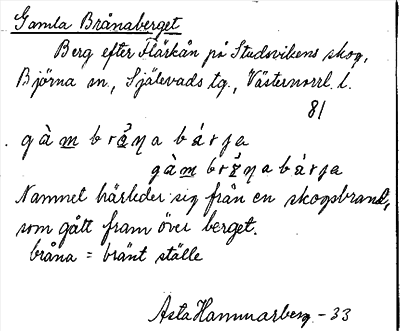 Gamla Brånaberget
Berg efter Flärkån på Studsvikens skog,
Björna sn, Själevads tg., Västernorrl. l.
81
gàm bråna bárja
gàm bråna bárja
Namnet härleder sig från en skogsbrand,
som gått fram över berget.
bråna = bränt ställe
Asta Hammarberg - 33